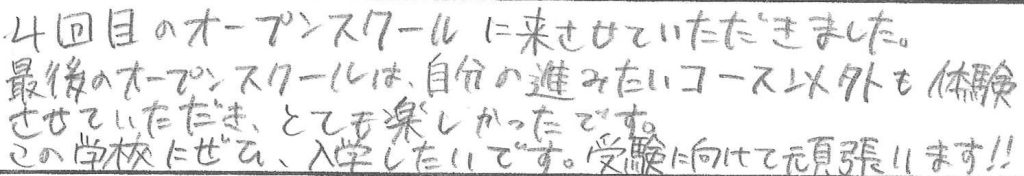 4回目のオープンスクールに来させていただきました。
最後のオープンスクールは、自分の進みたいコース以外も体験
させていただき、とても楽しかったです。
この学校にぜひ、入学したいです。受験に向けて頑張ります!!